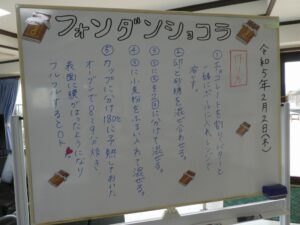 フォンダンショコラ
令和5年2月2日(木)
作り方
①チョコレートを割り、バターと
一緒にボールに入れレンジで
溶す。
②卵と砂糖を混ぜ合わせる。
③②に①を3回に分けて混ぜる。
④③に小麦粉をふるい入れて混ぜる。
⑤カップに分け180℃に予熱しておいた
オーブンで8~9分焼き
表面に膜がはったようになり
フルフルするとOK